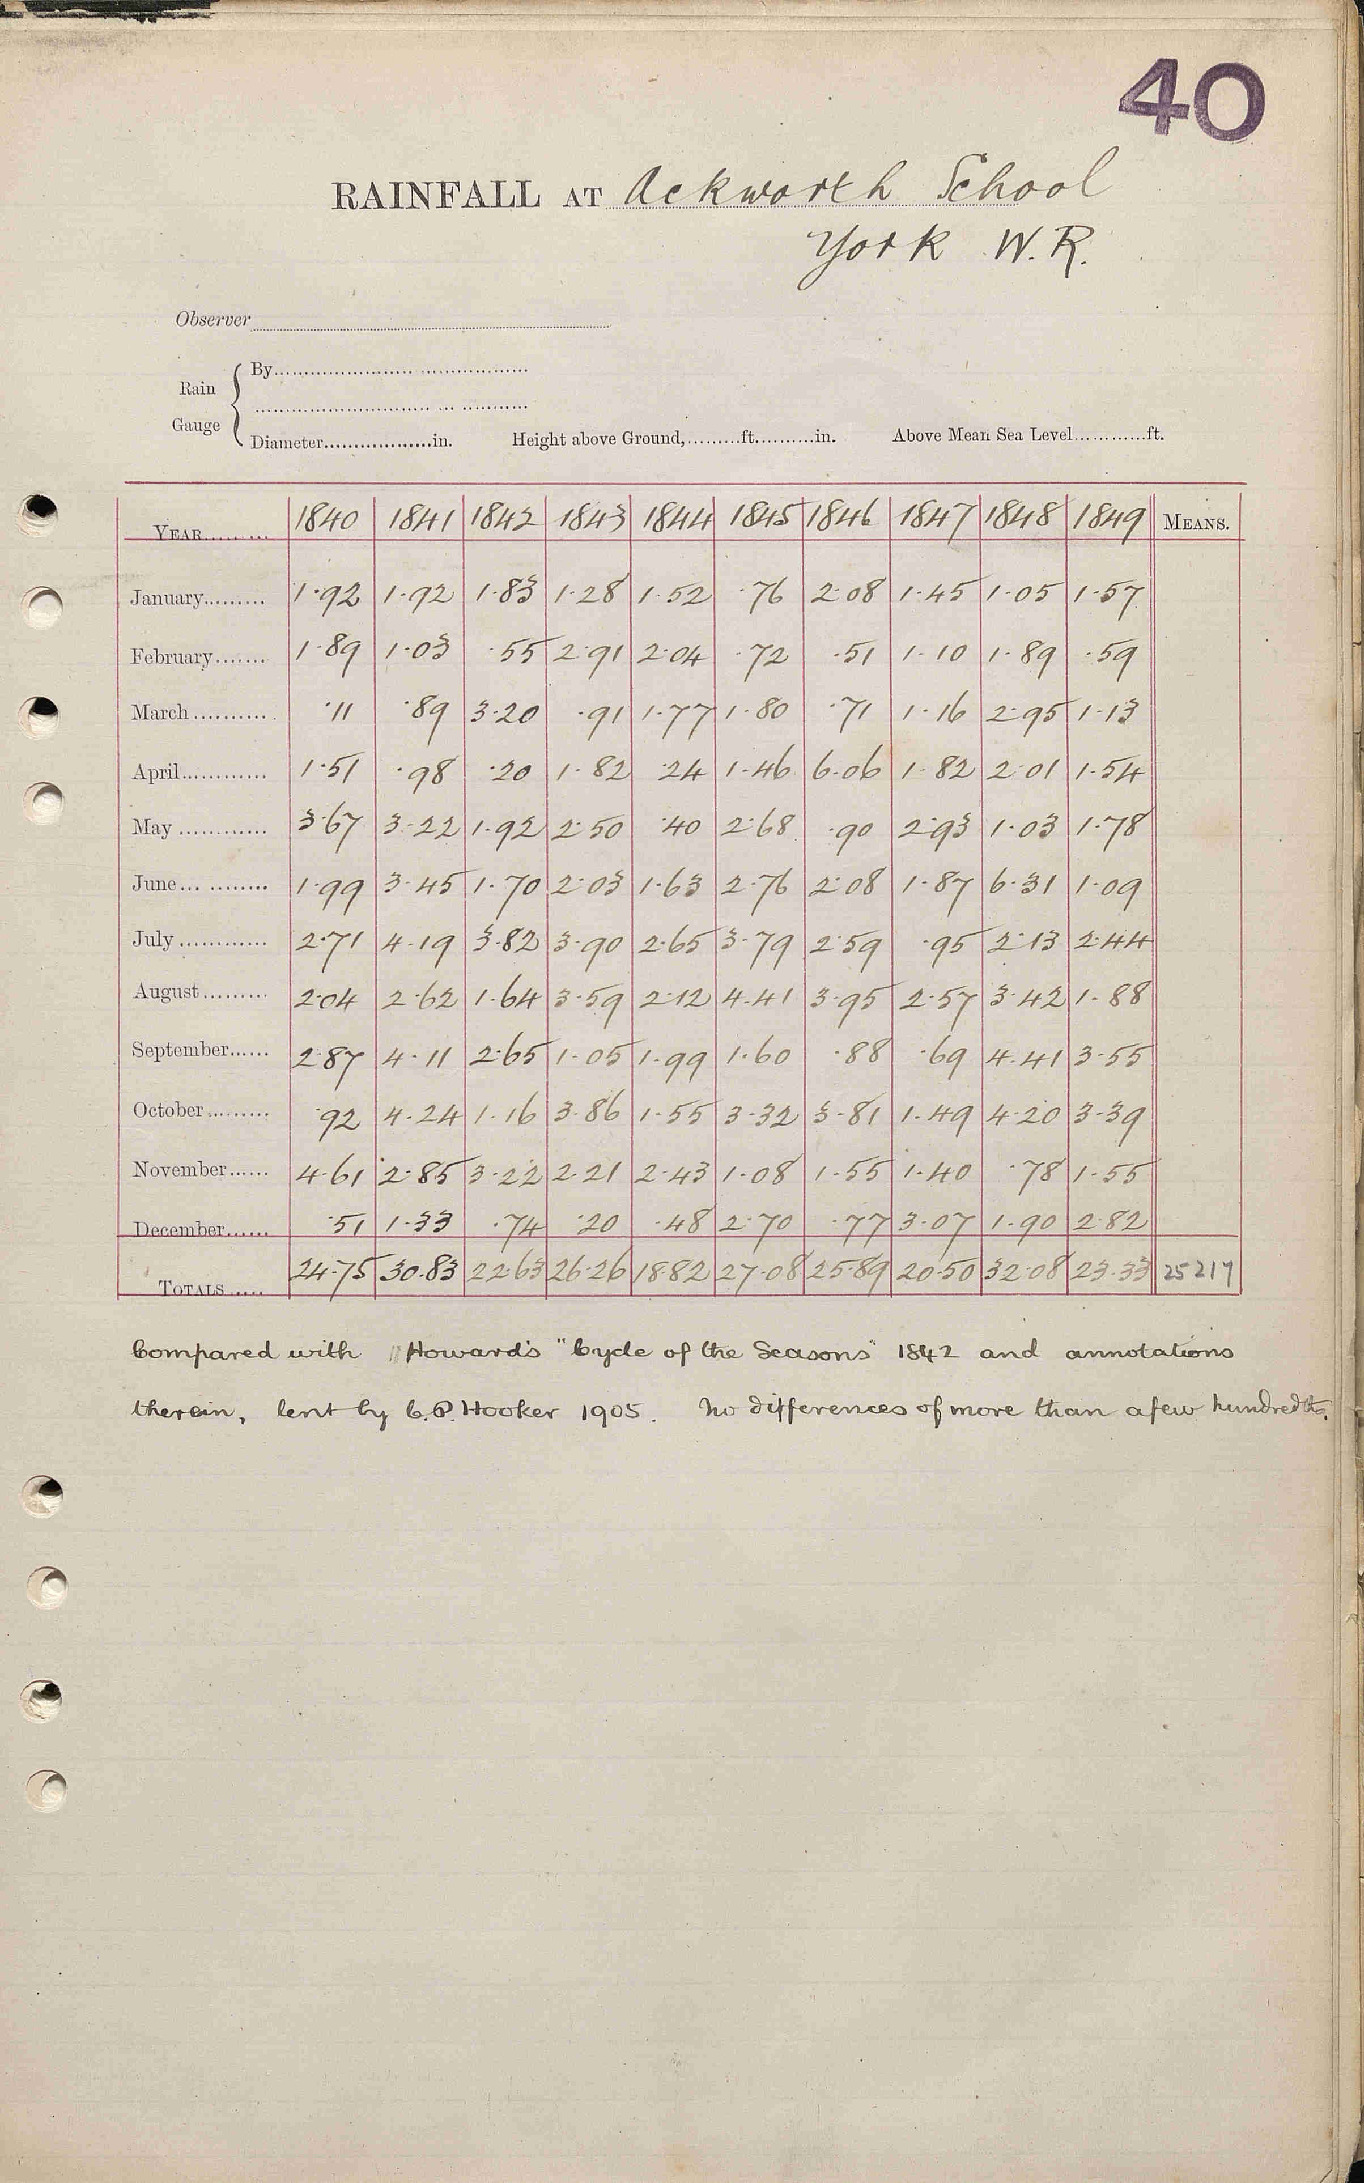 40
RAINFALL AT Ackworth School
York W.R.
Observer
Rain Gauge { By
Diameter in. Height above Ground, ft. in. Above Mean Sea Level ft.
YEAR 1840 1841 1842 1843 1844 1845 1846 1847 1848 1849 MEANS.
January 1.92 1.92 1.83 1.28 1.52 .76 2.08 1.45 1.05 1.57
February 1.89 1.03 .55 2.91 2.04 .72 .51 1.10 1.89 .59
March .11 .89 3.20 .91 1.77 1.80 .71 1.16 2.95 1.13
April 1.51 .98 .20 1.82 .24 1.46 6.06 1.82 2.01 1.54
May 3.67 3.22 1.92 2.50 .40 2.68 .90 2.93 1.03 1.78
June 1.99 3.45 1.70 2.03 1.63 2.76 2.08 1.87 6.31 1.09
July 2.71 4.19 3.82 3.90 2.65 3.79 2.59 .95 2.13 2.44
August 2.04 2.62 1.64 3.59 2.12 4.41 3.95 2.57 3.42 1.88
September 2.87 4.11 2.65 1.05 1.99 1.60 .88 .69 4.41 3.55
October .92 4.24 1.16 3.86 1.55 3.32 3.81 1.49 4.20 3.39
November 4.61 2.85 3.22 2.21 2.43 1.08 1.55 1.40 .78 1.55
December .51 1.33 .74 .20 .48 2.70 .77 3.07 1.90 2.82
TOTALS 24.75 30.83 22.63 26.26 18.82 27.08 25.89 20.50 32.08 23.33 25 217
Compared with Howard's "Cycle of the Seasons" 1842 and annotations
therein, lent by C.P. Hooker 1905. No differences of more than a few hundredths.